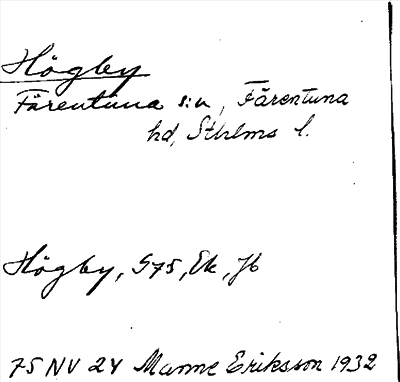 Högby
Färentuna s:n, Färentuna
hd, Sthlms l.
Högby, G75, Ek, Jb
75 NV 24 Manne Eriksson 1932